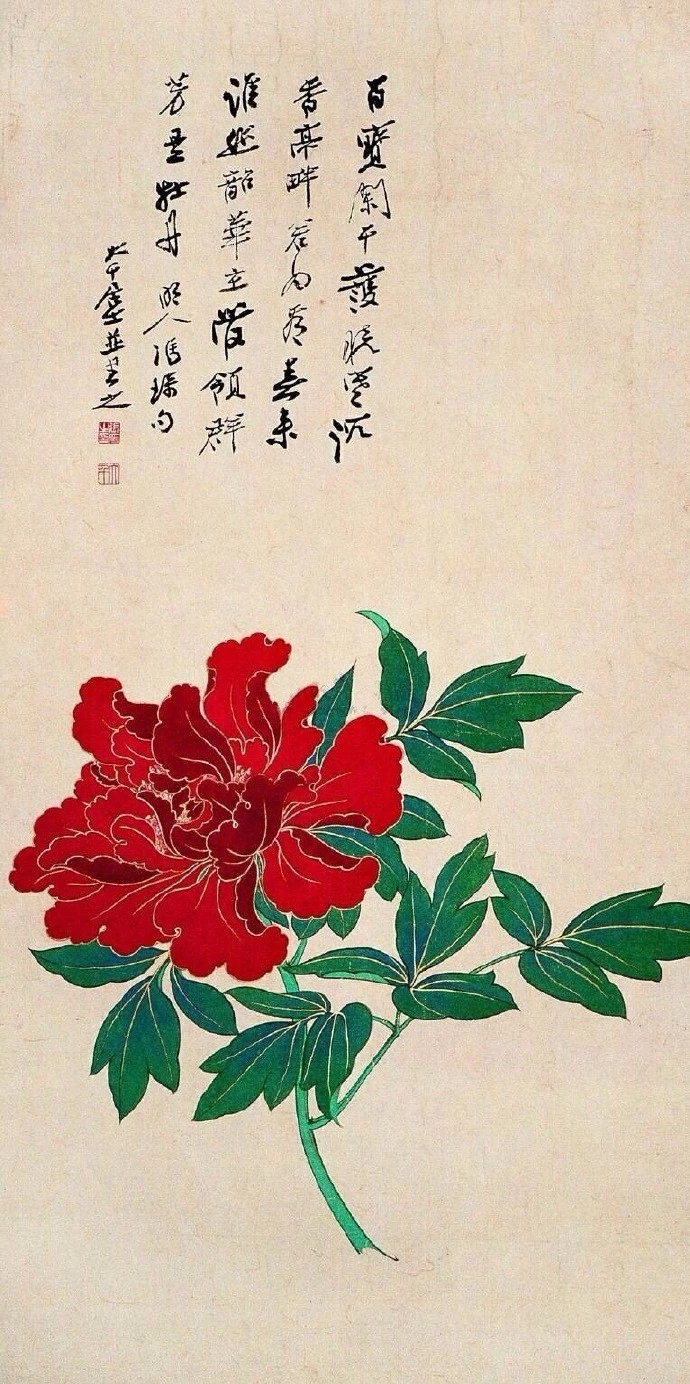 百寶闌干護曉寒沉
香亭畔若為看春來
誰韶華主領群
芳是牡丹 明人馮琢句
大千爰並書之
大千